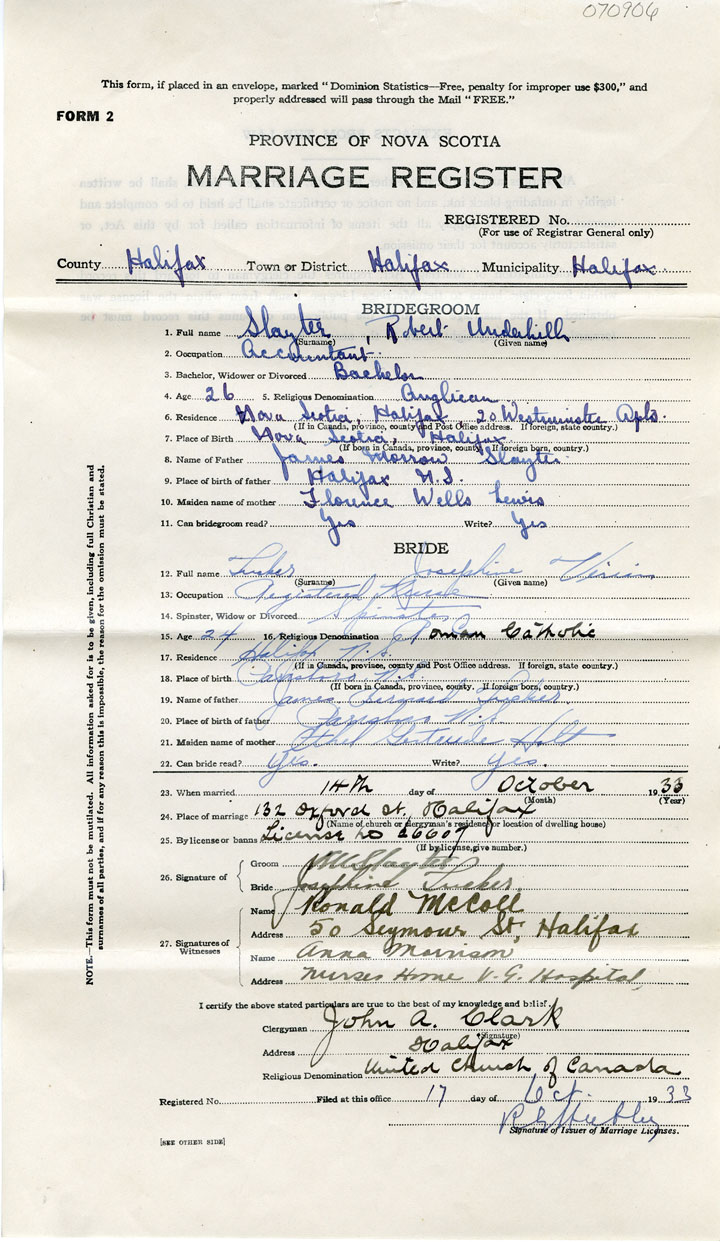 070906
This form, if placed in an envelope, marked "Dominion Statistics—Free, penalty for improper use $300," and
properly addressed will pass through the Mail "FREE."
FORM 2
PROVINCE OF NOVA SCOTIA
MARRIAGE REGISTER
REGISTERED No.
(For use of Registrar General only)
County Halifax Town or District Halifax Municipality Halifax
BRIDEGROOM
1. Full name Slayter, Robert Underhill
(Surname) (Given name)
2. Occupation Accountant.
3. Bachelor, Widower or Divorced Bachelor
4. Age 26 5. Religious Denomination Anglican
6. Residence Nova Scotia, Halifax 20 Westminster Apts.
(If in Canada, province, county and Post Office address. If foreign, state country.)
7. Place of Birth Nova Scotia, Halifax
(If born in Canada, province, county. If foreign born, country.)
8. Name of Father James Morrow Slayter
9. Place of birth of father Halifax N.S.
10. Maiden name of mother Florence Wells Lewis
11. Can bridegroom read? Yes Write? Yes
BRIDE
12. Full name Tucker Josephine
(Surname) (Given name)
13. Occupation Registered Nurse
14. Spinster, Widow or Divorced Spinster
15. Age 24 16. Religious Denomination R.C. Roman Catholic
17. Residence Halifax N.S.
(If in Canada, province, county and Post Office address. If foreign, state country.)
18. Place of birth Parrsboro N.S.
(If born in Canada, province, county. If foreign born, country.)
19. Name of father James Bernard Tucker
20. Place of birth of father Parrsboro N.S.
21. Maiden name of mother Ethel Gertrude Holt
22. Can bride read? Yes. Write? Yes.
23. When married 14th day of October 1933
(Month) (Year)
24. Place of marriage 132 Oxford St, Halifax
(Name of church or clergyman's residence or location of dwelling house)
25. By license or banns License no 26607
(If by license, give number.)
26. Signature of
Groom Slayter
Bride Josephine Tucker
27. Signatures of Witnesses
Name Ronald McColl
Address 50 Seymour St, Halifax
Name Anna Morrison
Address Nurses Home V.G. Hospital
I certify the above stated particulars are true to the best of my knowledge and belief.
Clergyman John A. Clark
(Signature)
Address Halifax
Religious Denomination United Church of Canada
Registered No. Filed at this office 17 day of Oct. 1933
Signature of Issuer of Marriage Licenses.
[SEE OTHER SIDE]
NOTE.—This form must not be mutilated. All information asked for is to be given, including full Christian and
surnames of all parties, and if for any reason this is impossible, the reason for the omission must be stated.